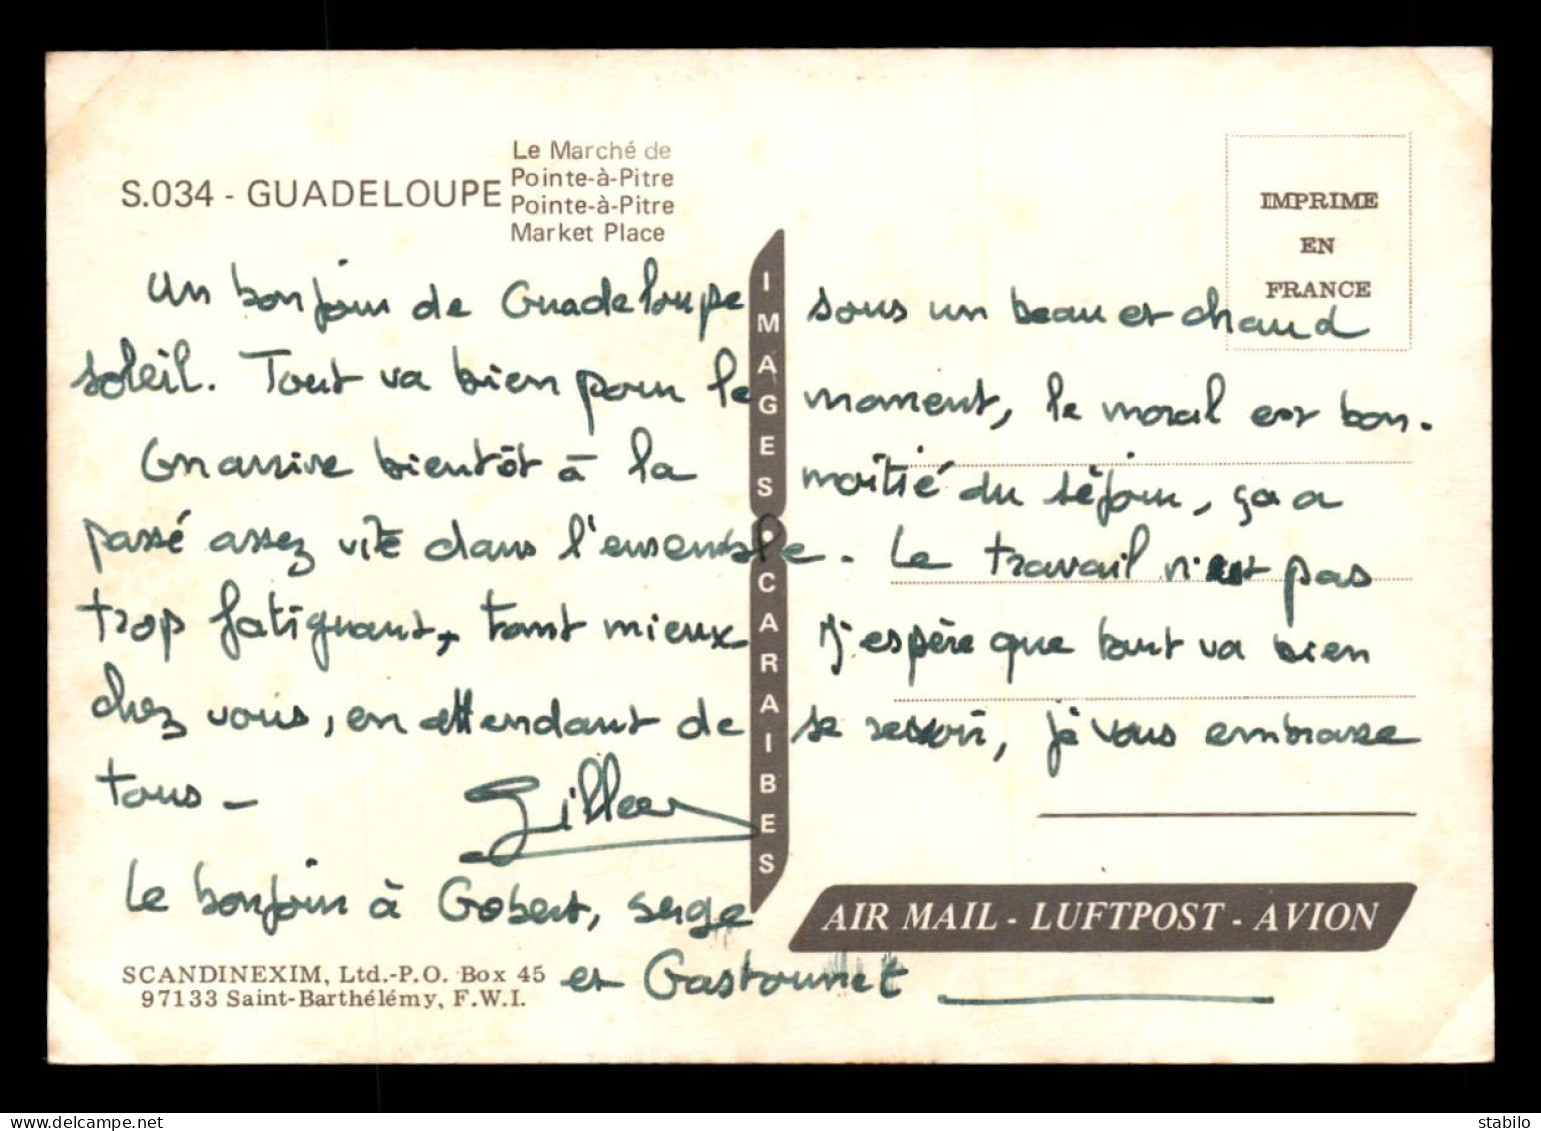 S.034 - GUADELOUPE
Le Marché de
Pointe-à-Pitre
Pointe-à-Pitre
Market Place
IMPRIME
EN
FRANCE
Un bonjour de Guadeloupe sous un beau et chaud
soleil. Tout va bien pour le moment, le moral est bon.
On arrive bientôt à la moitié du séjour, ça a
passé assez vite dans l'ensemble. Le travail n'est pas
trop fatiguant, tant mieux J'espère que tout va bien
chez vous, en attendant de se revoir, je vous embrasse
tous -
Gilles
Le bonjour à Gobert, Serge
et Gastounet
IMAGES CARAIBES
AIR MAIL - LUFTPOST - AVION
SCANDINEXIM, Ltd.-P.O. Box 45
97133 Saint-Barthélémy, F.W.I.
stabilo - delcampe.net